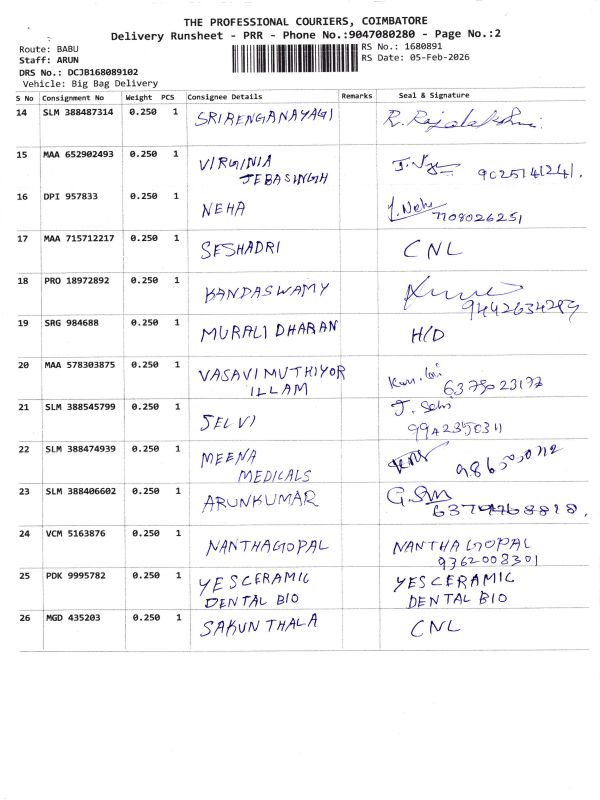 THE PROFESSIONAL COURIERS, COIMBATORE
Delivery Runsheet - PRR - Phone No.:9047080280 - Page No.:2
Route: BABU
RS No.: 1680891
Staff: ARUN
RS Date: 05-Feb-2026
DRS No.: DCJB168089102
Vehicle: Big Bag Delivery
S No Consignment No Weight PCS Consignee Details Remarks Seal & Signature
14 SLM 388487314 0.250 1 SRIRENGANAYAGI R. Rajalakshmi
15 MAA 652902493 0.250 1 VIRGINIA
JEBASINGH 9025141241.
16 DPI 957833 0.250 1 NEHA J. Neha
7709026251
17 MAA 715712217 0.250 1 SESHADRI CNL
18 PRO 18972892 0.250 1 KANDASWAMY
9442634289
19 SRG 984688 0.250 1 MURALI DHARAN H/D
20 MAA 578303875 0.250 1 VASAVI MUTHIYOR
ILLAM
21 SLM 388545799 0.250 1 SELVI J. Selvi
9942350311
22 SLM 388474939 0.250 1 MEENA
MEDICALS
23 SLM 388406602 0.250 1 ARUNKUMAR
24 VCM 5163876 0.250 1 NANTHAGOPAL NANTHAGOPAL
9362008301
25 PDK 9995782 0.250 1 YESCERAMIC YESCERAMIC
DENTAL BIO DENTAL BIO
26 MGD 435203 0.250 1 SAKUNTHALA CNL